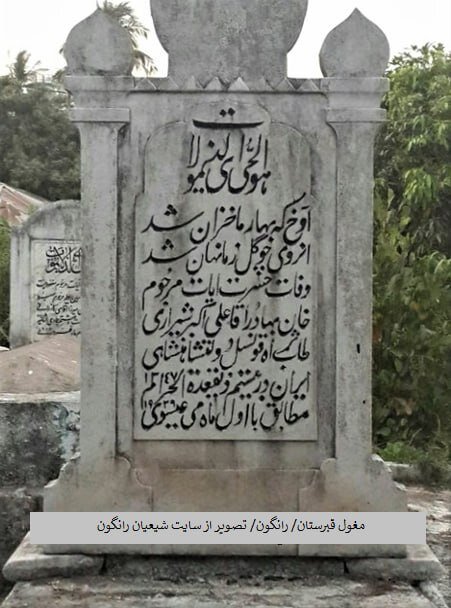 هو الحی الذی لا یموت
آوخ که بهار ما خزان شد
انروی چو گل زما نهان شد
وفات حسرت آیات مرحوم
خان بهادر آقا علی اکبر شیرازی
طاب ثراه قونسل دولت شاهنشاهی
ایران در بیستم ذیقعدة الحرام ۱۳۴۷
مطابق با اول ماه می عیسوی ۱۹۲۹
مغول قبرستان/ رانگون/ تصویر از سایت شیعیان رانگون